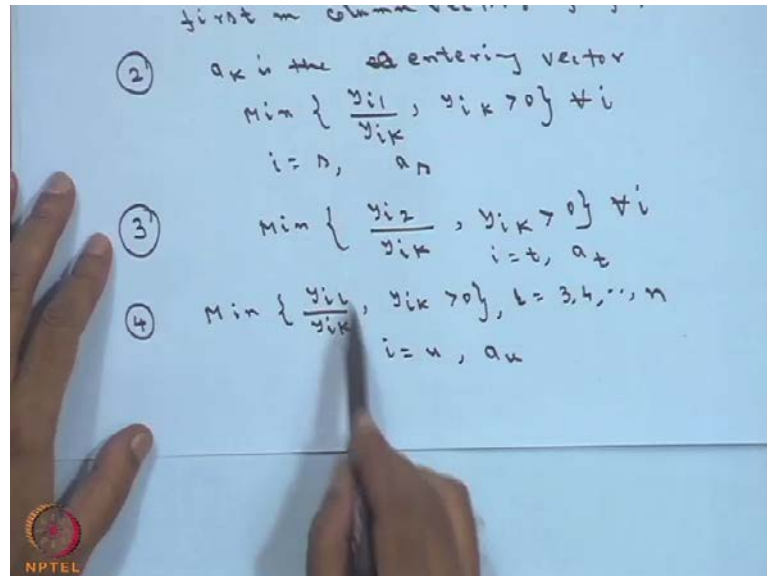 first m column vectors
② a_K is the entering vector
Min { y_i1 / y_iK , y_iK > 0 } ∀ i
i = s, a_s
③ Min { y_i2 / y_iK , y_iK > 0 } ∀ i
i = t, a_t
④ Min { y_iL / y_iK , y_iK > 0 }, L = 3, 4, .., n
i = u, a_u
NPTEL